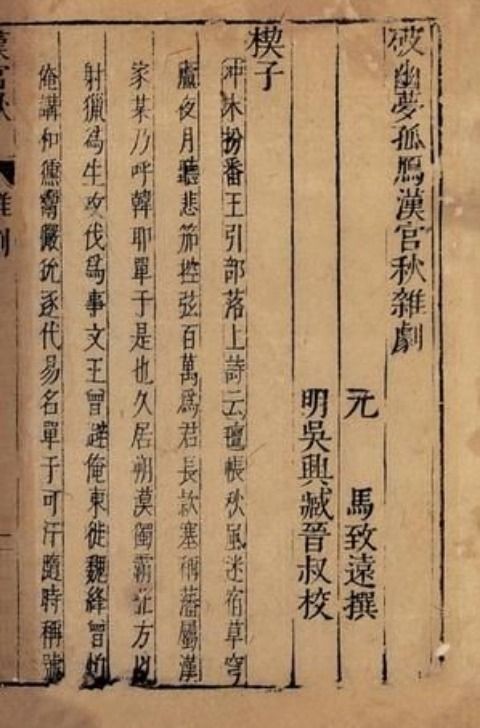 破幽夢孤鴈漢宮秋雜劇
元　馬致遠撰
明吳興臧晉叔校
楔子
冲末扮番王引部落上詩云氊帳秋風迷宿草穹
廬夜月聽悲笳控弦百萬爲君長款塞稱藩屬漢
家某乃呼韓耶單于是也久居朔漠獨霸北方以
射獵爲生攻伐爲事文王曾避俺東徙魏絳曾怕
俺講和獯鬻玁狁逐代易名單于可汗隨時稱號